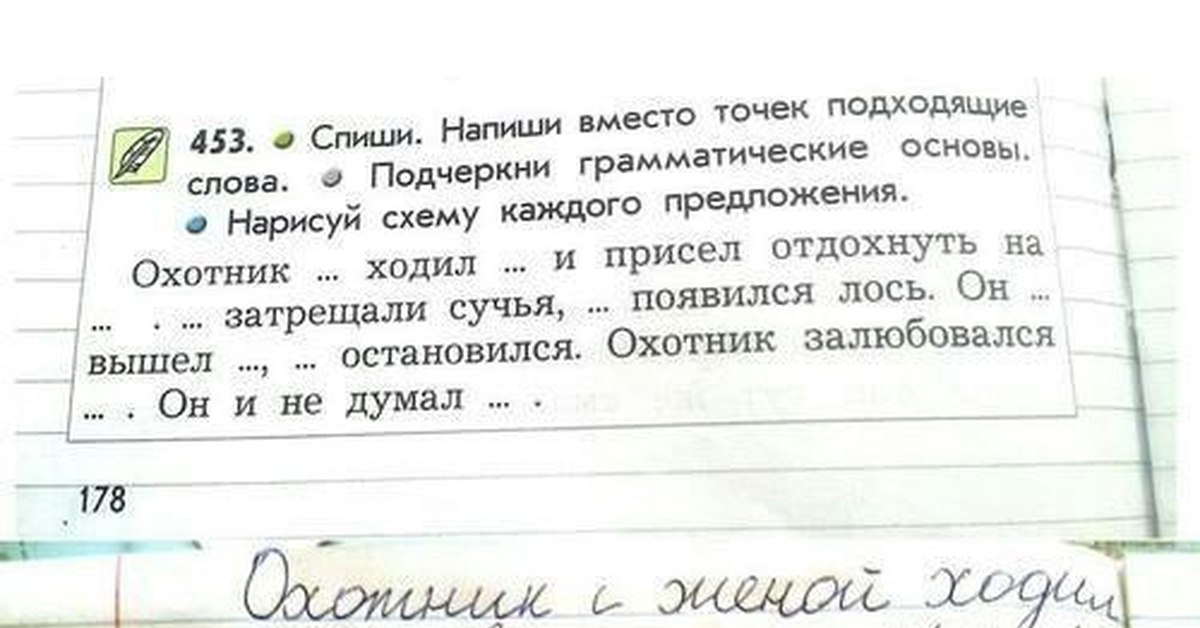 453. Спиши. Напиши вместо точек подходящие
слова. Подчеркни грамматические основы.
Нарисуй схему каждого предложения.
Охотник ... ходил ... и присел отдохнуть на
... . ... затрещали сучья, ... появился лось. Он ...
вышел ..., ... остановился. Охотник залюбовался
... . Он и не думал ... .
178
Охотник с женой ходил